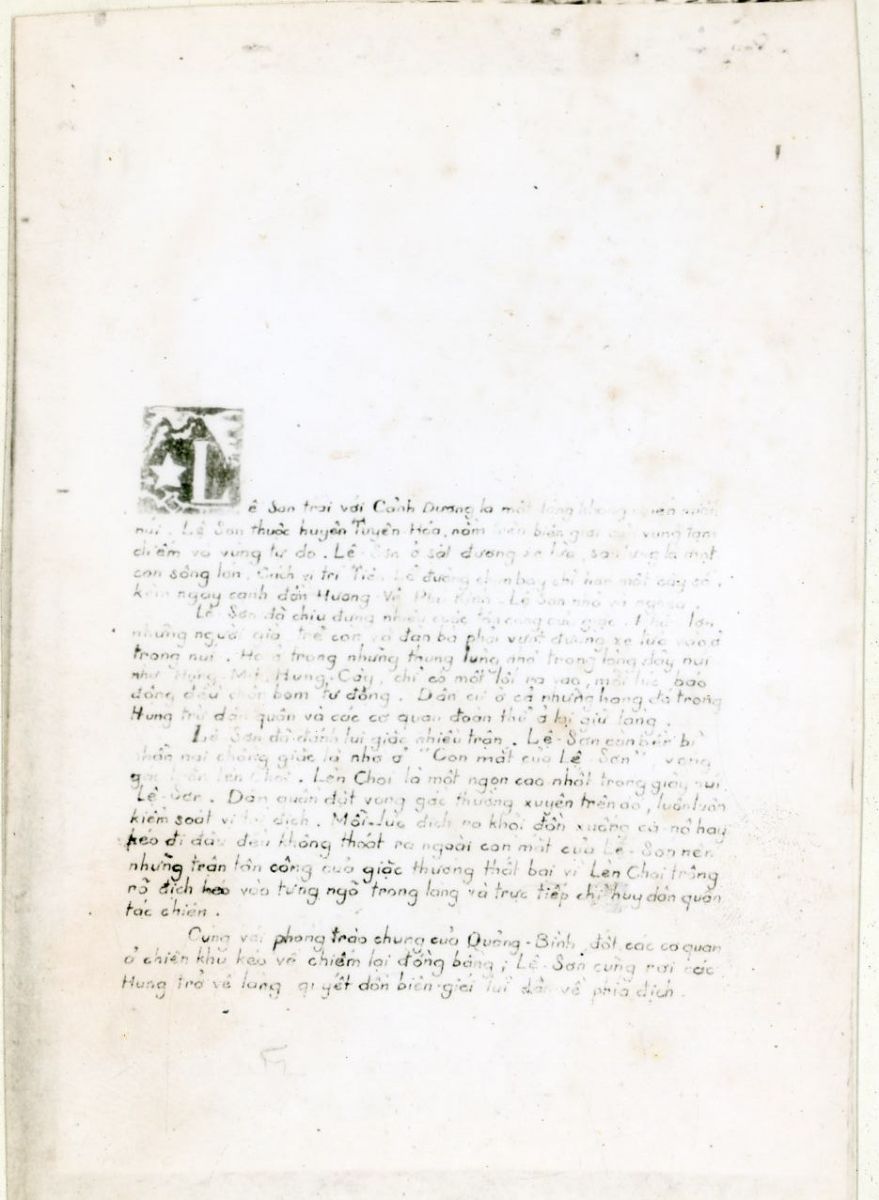 Lê Sơn trái với Cảnh Dương là một làng
núi. Lệ Sơn thuộc huyện Tuyên-Hóa, nằm trên biên giới vùng tạm
chiếm và vùng tự do. Lệ-Sơn ở sát đường xe lửa, là một
con sông lớn. vị trí Tiến đường chim bay chỉ hơn một cây số,
ngay cạnh đồn Lệ Sơn nhỏ và
Lệ-Sơn đã chịu đựng nhiều cuộc tấn công của giặc.
những người già trẻ con và đàn bà phải vượt đường xe lửa vào ở
trong núi. Họ ở trong những thung lũng nhỏ trong lòng dãy núi
như Hung Hung-Cày, chỉ có một lối ra vào, mỗi lúc báo
động đều bom tự động. Dân cư ở cả những hang đá trong
Hung trừ dân quân và các cơ quan đoàn thể ở lại giữ làng.
Lệ Sơn đã đánh lui giặc nhiều trận. Lệ-Sơn
giặc là nhờ ở "Con mắt của Lệ-Sơn", vọng
gác trên Lèn Chọi. Lèn Chọi là một ngọn cao nhất trong giãy núi
Lệ-Sơn. Dân quân đặt vọng gác thường xuyên trên đó, luôn luôn
kiểm soát vị trí địch. Mỗi-lúc địch ra khỏi đồn xuống ca-nô hay
kéo đi đâu đều không thoát ra ngoài con mắt của Lệ-Sơn nên
những trận tấn công của giặc thường thất bại vì Lèn Chọi trông
rõ địch kéo vào từng ngõ trong làng và trực tiếp chỉ huy dân quân
tác chiến.
Cùng với phong trào chung của Quảng-Bình, đốt các cơ quan
ở chiến khu kéo về chiếm lại đồng bằng, Lệ-Sơn cũng rời các
Hung trở về làng quyết dồn biên-giới lui dần về phía địch.